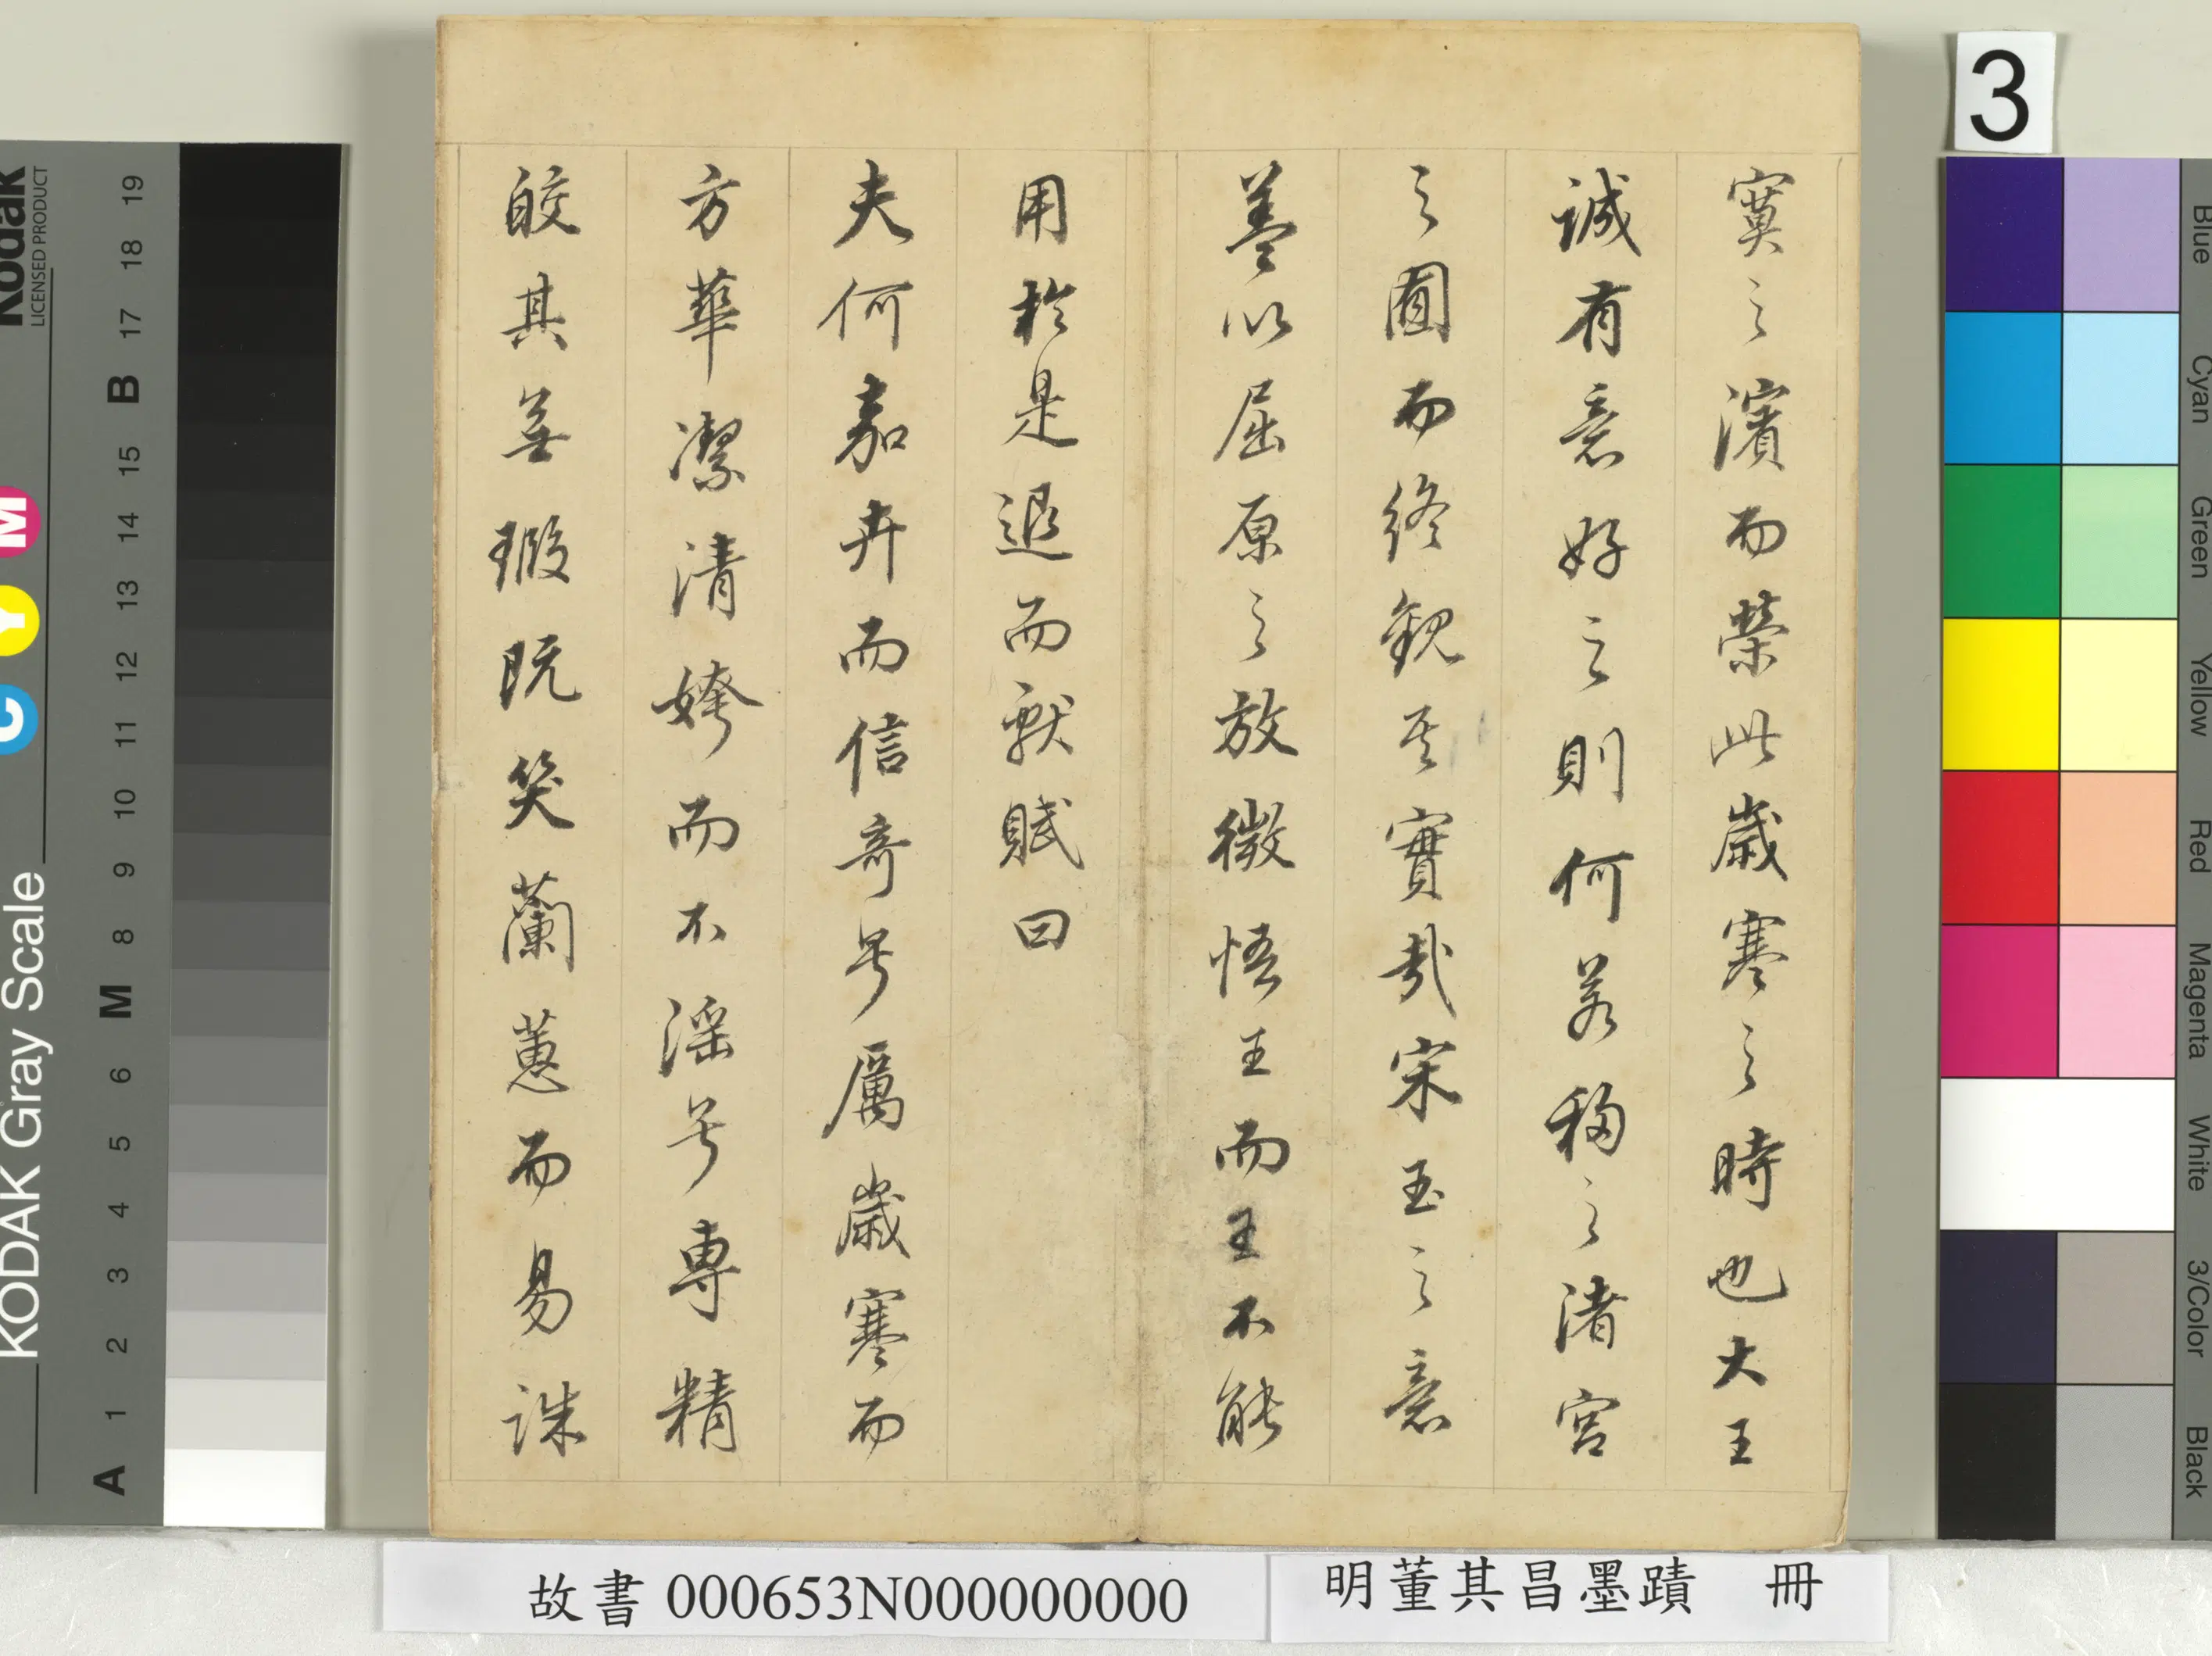 寞之濱而榮此歲寒之時也大王
誠有意好之則何若移之渚宮
之囿而終觀其實哉宋玉之意
蓋以屈原之放微悟王而王不能
用於是退而獻賦曰
夫何嘉卉而信奇兮厲歲寒而
方華潔清姱而不淫兮專精
皎其無瑕既笑蘭蕙而易誅
3
故書 000653N000000000
明董其昌墨蹟 冊
Kodak
LICENSED PRODUCT
KODAK Gray Scale
C Y M
A 1 2 3 4 5 6 M 8 9 10 11 12 13 14 15 B 17 18 19
Blue
Cyan
Green
Yellow
Red
Magenta
White
3/Color
Black